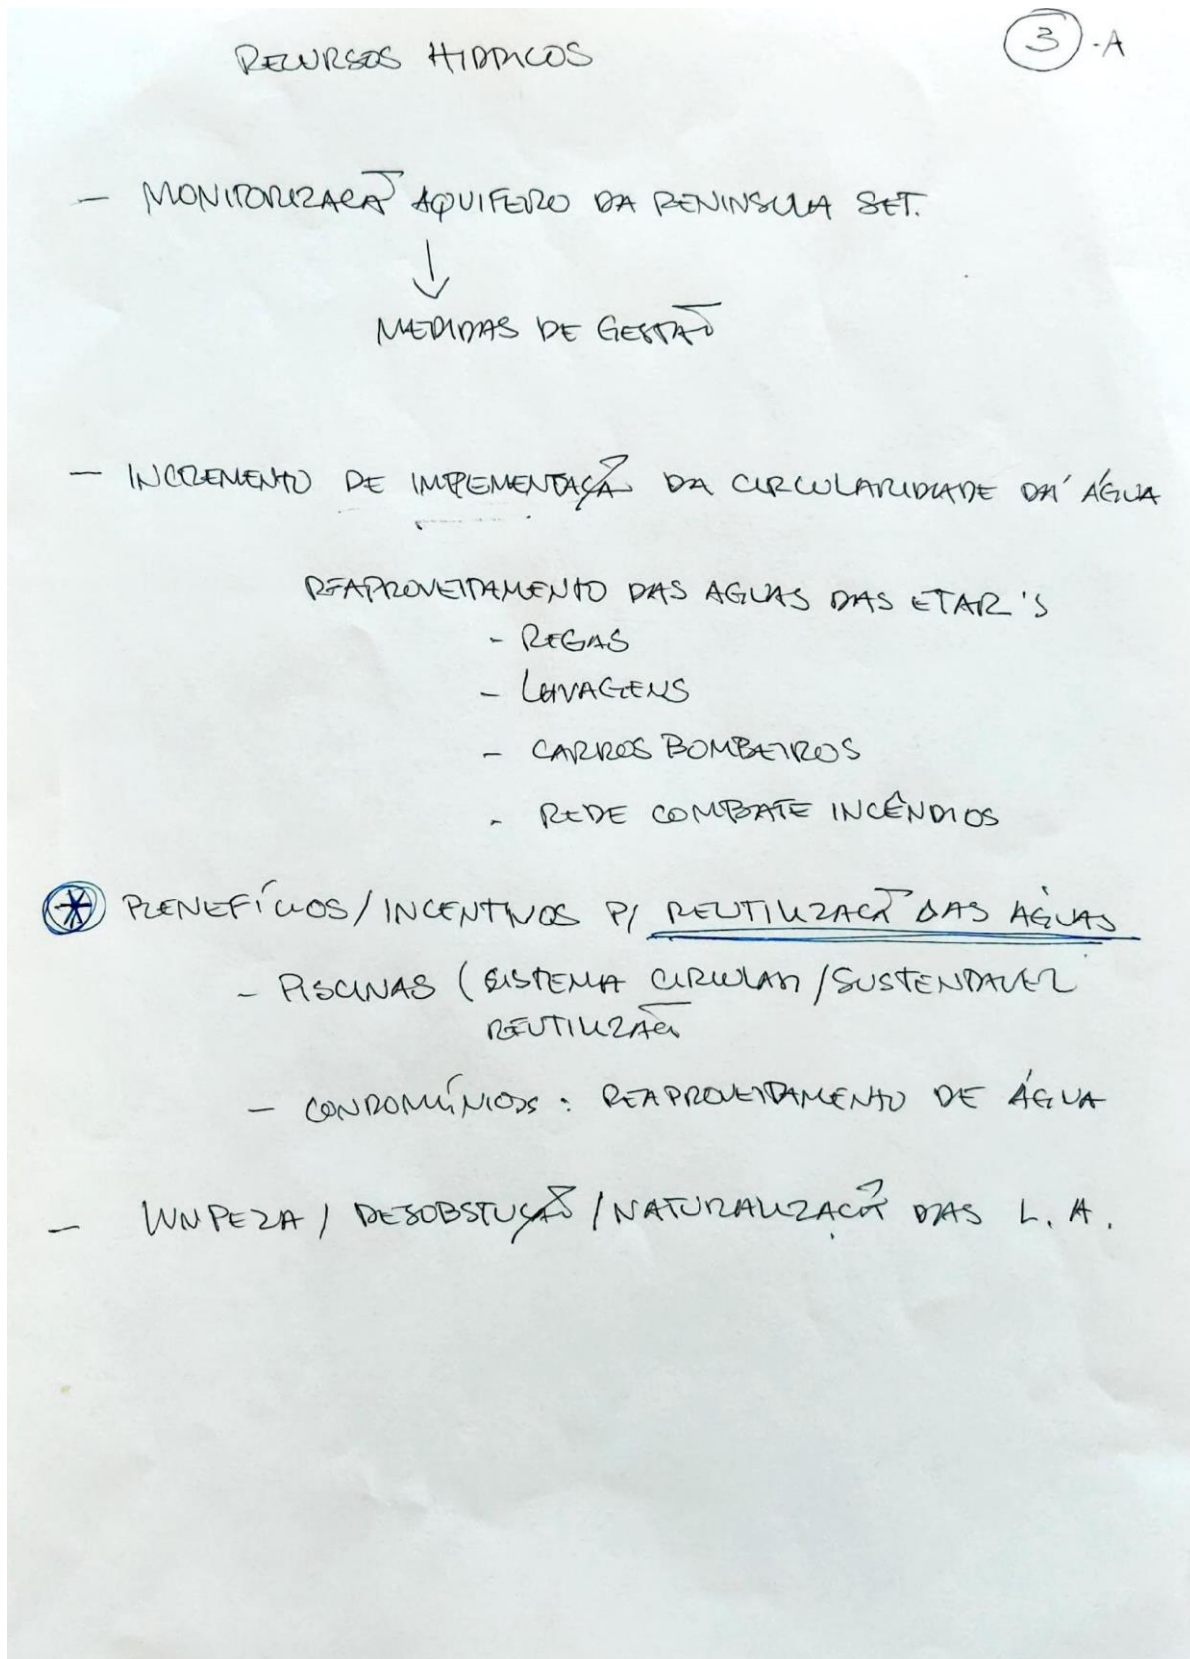 RECURSOS HIDRICOS
3 -A
- MONITORIZAÇÃO AQUIFERO DA PENINSULA SET.
↓
MEDIDAS DE GESTÃO
- INCREMENTO DE IMPEMENTAÇÃO DA CIRCULARIDADE DA ÁGUA
REAPROVEITAMENTO DAS AGUAS DAS ETAR'S
- REGAS
- LAVAGENS
- CARROS BOMBEIROS
- REDE COMBATE INCÊNDIOS
* BENEFÍCIOS/INCENTIVOS P/ REUTILIZAÇÃO DAS ÁGUAS
- PISCINAS (SISTEMA CIRCULAR/SUSTENTAVEL
REUTILIZAÇÃO
- CONDOMÍNIOS: REAPROVEITAMENTO DE ÁGUA
- LIMPEZA/DESOBSTUÇÃO/NATURALIZAÇÃO DAS L.A.